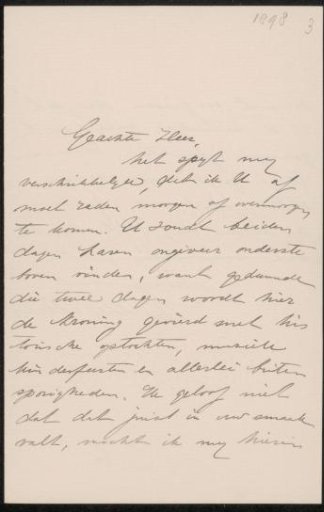 1898 3
Geachte Heer,
het spijt my
verschrikkelyk, dat ik U af
moet raden morgen of overmorgen
te komen. U zoudt beiden
dagen Laren ongeveer onderste
boven vinden, want gedurende
die twee dagen wordt hier
de kroning gevierd met his
torische optochten, muziek
kinderfeesten en allerlei buiten
sporigheden. Ik geloof niet
dat dat juist in uw smaak
valt, mocht ik my hierin